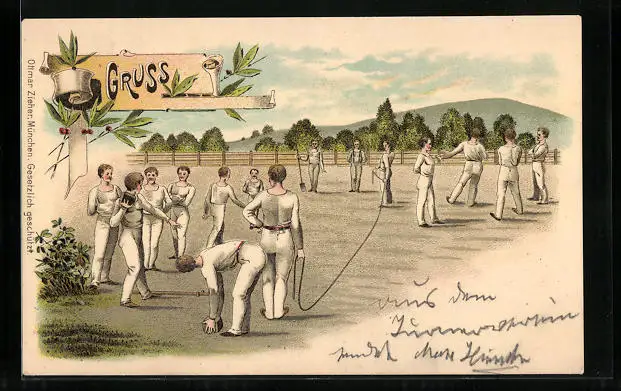 GRUSS
Ottmar Zieher, München. Gesetzlich geschützt
aus dem
Turnverein
sendet Max